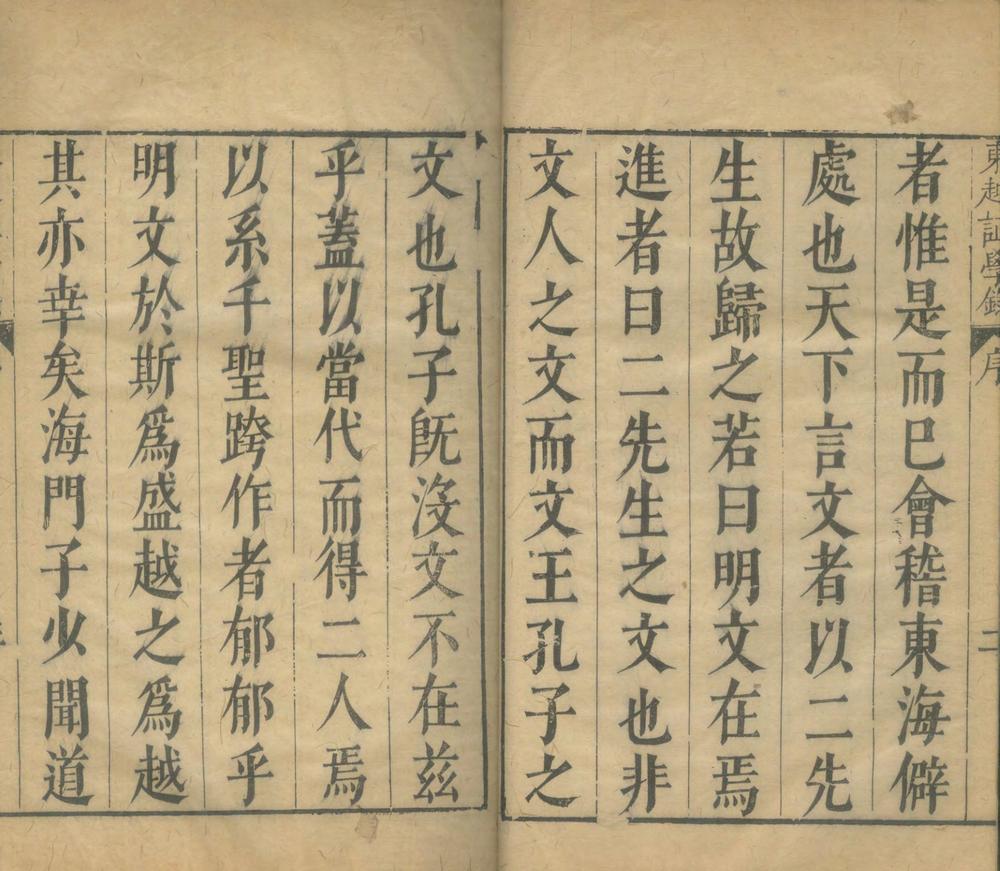 東越證學錄
序
二
者惟是而已會稽東海僻
處也天下言文者以二先
生故歸之若曰明文在焉
進者曰二先生之文也非
文人之文而文王孔子之
文也孔子旣沒文不在茲
乎蓋以當代而得二人焉
以系千聖跨作者郁郁乎
明文於斯爲盛越之爲越
其亦幸矣海門子少聞道